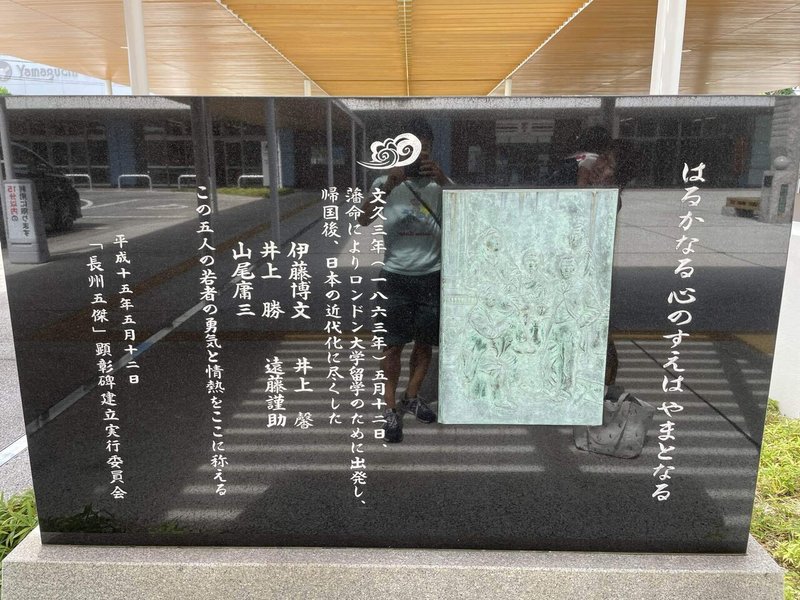 はるかなる心のすえはやまとなる
文久三年（一八六三年）五月十二日、
藩命によりロンドン大学留学のために出発し、
帰国後、日本の近代化に尽くした
伊藤博文 井上 馨
井上 勝 遠藤謹助
山尾庸三
この五人の若者の勇気と情熱をここに称える
平成十五年五月十二日
「長州五傑」顕彰碑建立実行委員会
Yamaguchi
15分以内の